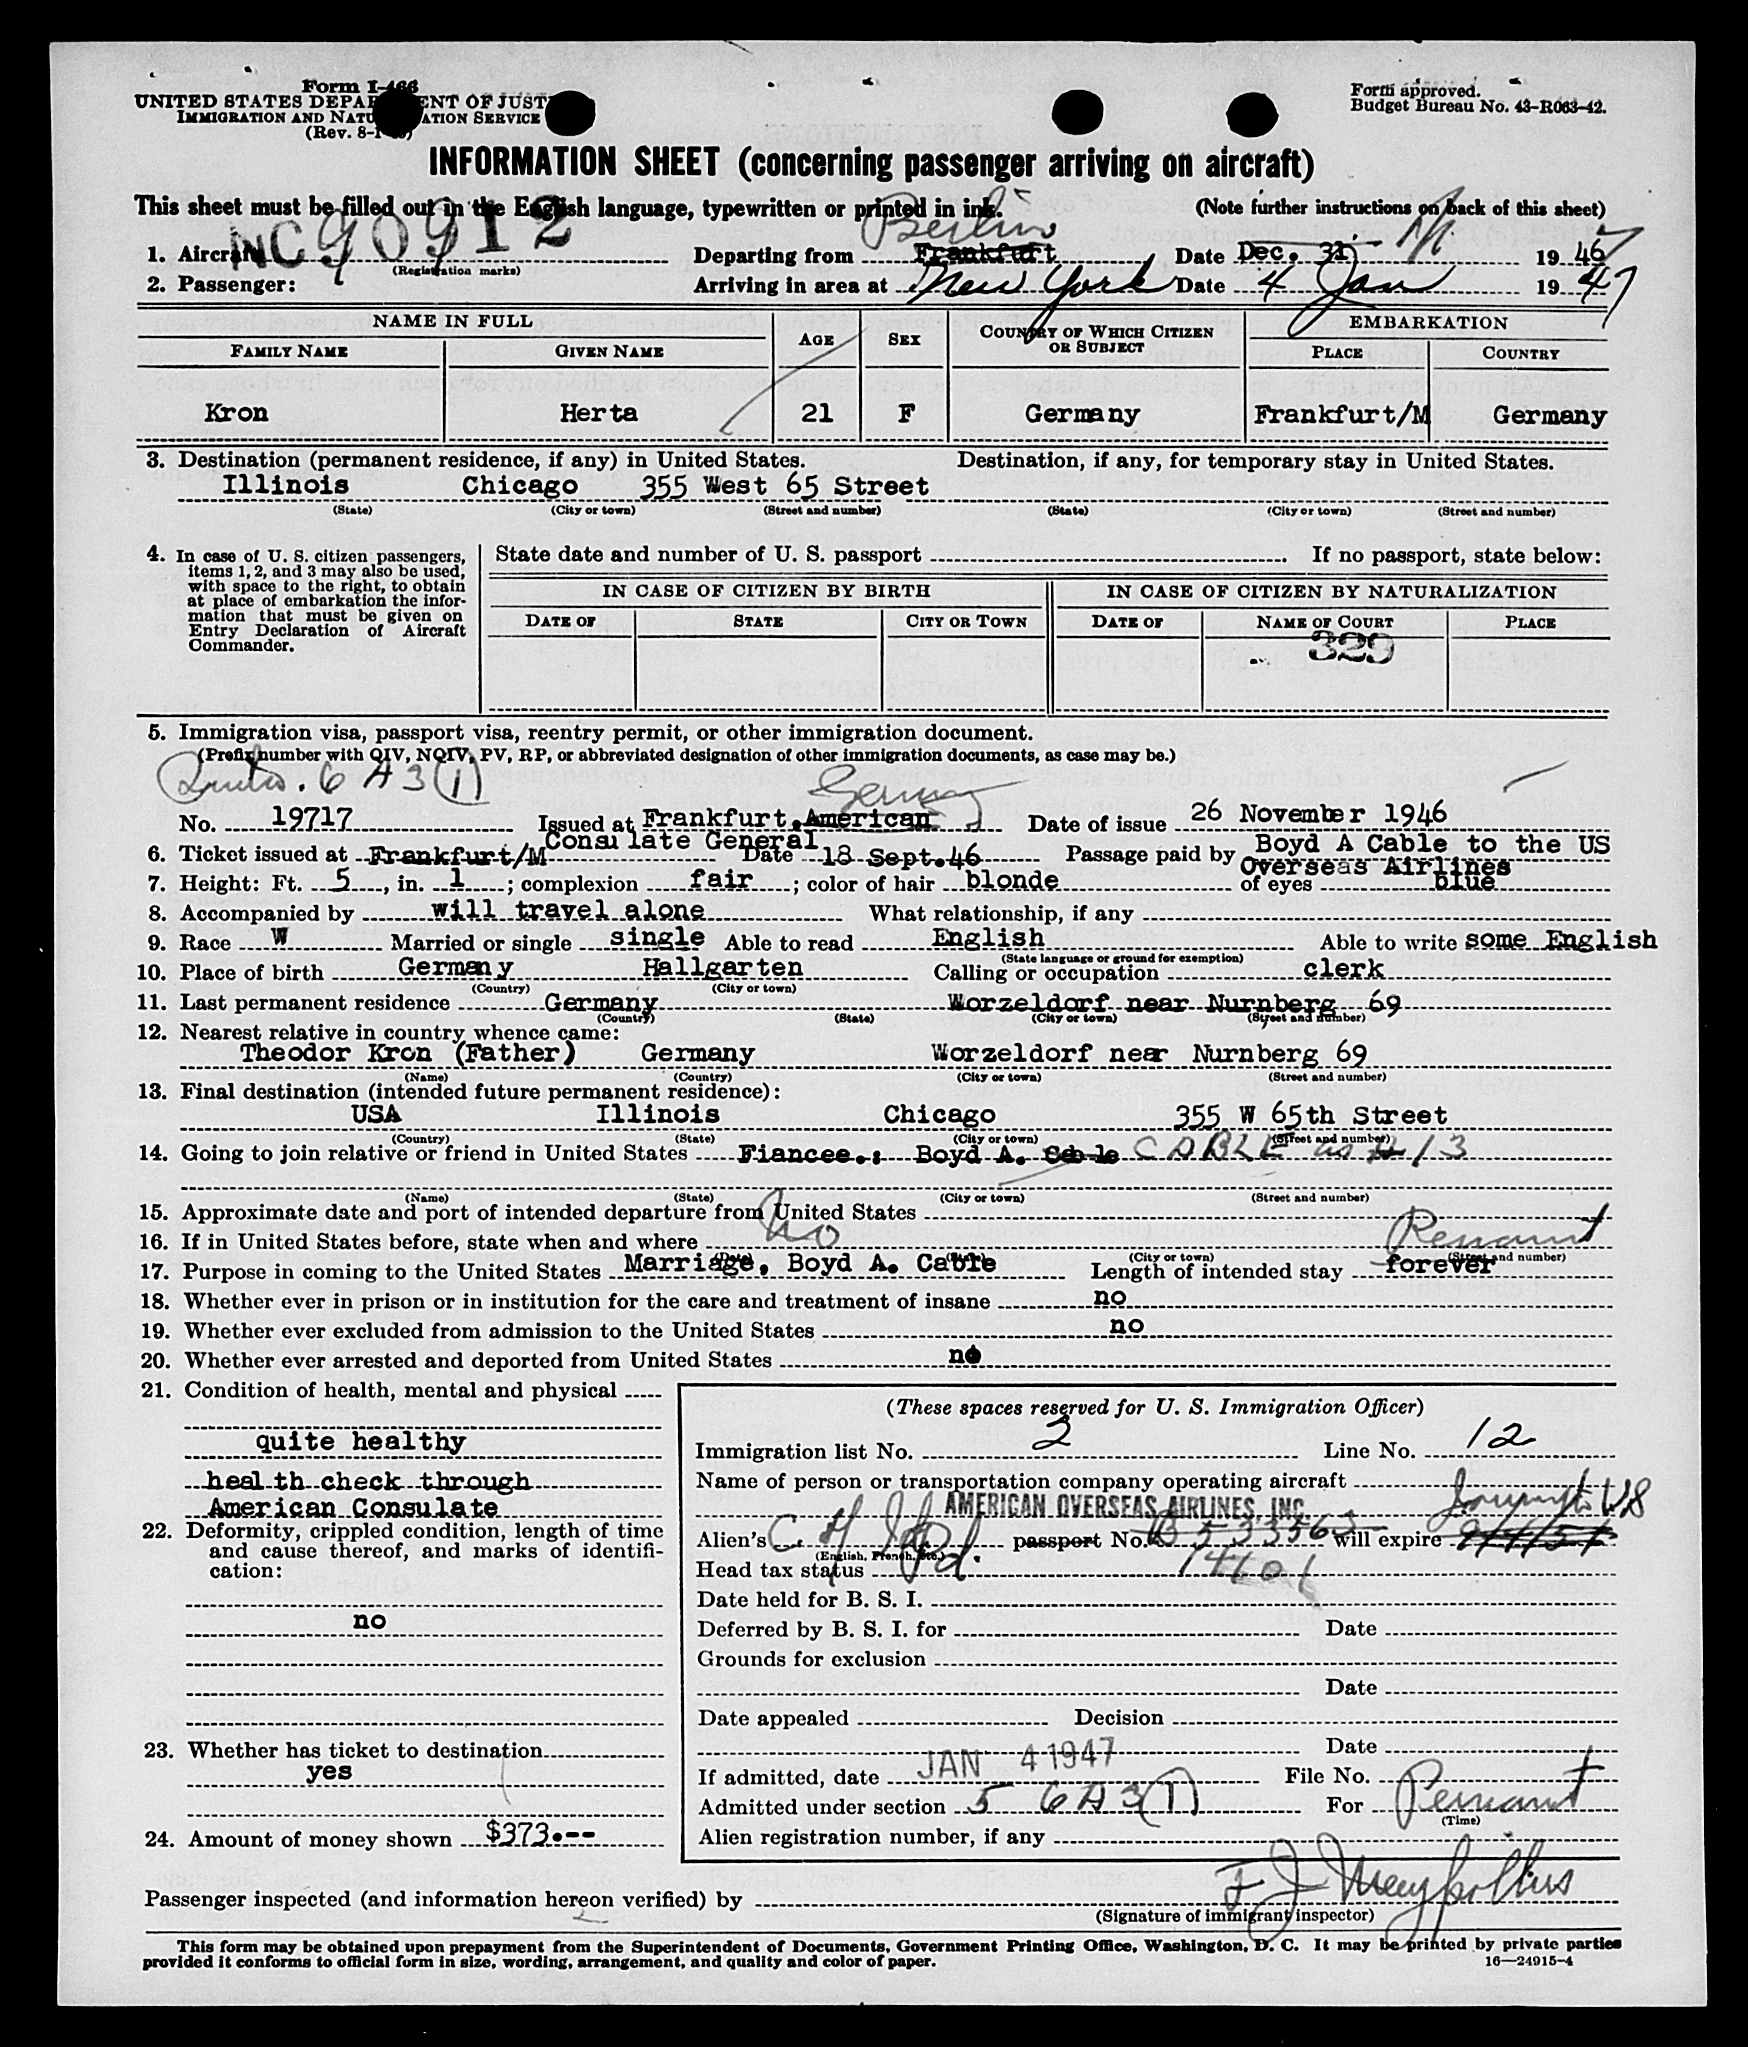 Form I-466
UNITED STATES DEPARTMENT OF JUSTICE
IMMIGRATION AND NATURALIZATION SERVICE
(Rev. 8-1-
Form approved.
Budget Bureau No. 43-R063-42.
INFORMATION SHEET (concerning passenger arriving on aircraft)
This sheet must be filled out in the English language, typewritten or printed in ink. (Note further instructions on back of this sheet)
1. Aircraft NC90912 (Registration marks) Departing from Frankfurt Berlin Date Dec. 31, 1946 7
2. Passenger: Arriving in area at New York Date 4 Jan 1947
NAME IN FULL AGE SEX COUNTRY OF WHICH CITIZEN OR SUBJECT EMBARKATION
FAMILY NAME GIVEN NAME PLACE COUNTRY
Kron Herta 21 F Germany Frankfurt/M Germany
3. Destination (permanent residence, if any) in United States. Destination, if any, for temporary stay in United States.
Illinois Chicago 355 West 65 Street
(State) (City or town) (Street and number) (State) (City or town) (Street and number)
4. In case of U. S. citizen passengers, items 1, 2, and 3 may also be used, with space to the right, to obtain at place of embarkation the information that must be given on Entry Declaration of Aircraft Commander.
State date and number of U. S. passport . If no passport, state below:
IN CASE OF CITIZEN BY BIRTH IN CASE OF CITIZEN BY NATURALIZATION
DATE OF STATE CITY OR TOWN DATE OF NAME OF COURT PLACE
329
5. Immigration visa, passport visa, reentry permit, or other immigration document.
(Prefix number with QIV, NQIV, PV, RP, or abbreviated designation of other immigration documents, as case may be.)
6 A 3 (1) Germany
No. 19717 Issued at Frankfurt, American Consulate General Date of issue 26 November 1946
6. Ticket issued at Frankfurt/M Date 18 Sept.46 Passage paid by Boyd A Cable to the US Overseas Airlines
7. Height: Ft. 5, in. 1; complexion fair; color of hair blonde of eyes blue
8. Accompanied by will travel alone What relationship, if any
9. Race W Married or single single Able to read English Able to write some English
(State language or ground for exemption)
10. Place of birth Germany Hallgarten Calling or occupation clerk
(Country) (City or town)
11. Last permanent residence Germany Worzeldorf near Nurnberg 69
(Country) (State) (City or town) (Street and number)
12. Nearest relative in country whence came:
Theodor Kron (Father) Germany Worzeldorf near Nurnberg 69
(Name) (Country) (City or town) (Street and number)
13. Final destination (intended future permanent residence):
USA Illinois Chicago 355 W 65th Street
(Country) (State) (City or town) (Street and number)
14. Going to join relative or friend in United States Fiancee.: Boyd A. Cable CABLE as #13
(Name) (State) (City or town) (Street and number)
15. Approximate date and port of intended departure from United States
16. If in United States before, state when and where No
(Date) (State) (City or town) (Street and number)
17. Purpose in coming to the United States Marriage, Boyd A. Cable Length of intended stay forever
18. Whether ever in prison or in institution for the care and treatment of insane no
19. Whether ever excluded from admission to the United States no
20. Whether ever arrested and deported from United States no
21. Condition of health, mental and physical
quite healthy
health check through
American Consulate
22. Deformity, crippled condition, length of time and cause thereof, and marks of identification:
no
23. Whether has ticket to destination
yes
24. Amount of money shown $373.--
(These spaces reserved for U. S. Immigration Officer)
Immigration list No. 2 Line No. 12
Name of person or transportation company operating aircraft
AMERICAN OVERSEAS AIRLINES, INC.
Alien's passport No. B 533563 will expire
(English, French, etc.)
Head tax status Pd. 14601
Date held for B. S. I.
Deferred by B. S. I. for Date
Grounds for exclusion
Date
Date appealed Decision
Date
If admitted, date JAN 4 1947 File No.
Admitted under section 5 6A3(1) For
(Time)
Alien registration number, if any
Passenger inspected (and information hereon verified) by
(Signature of immigrant inspector)
This form may be obtained upon prepayment from the Superintendent of Documents, Government Printing Office, Washington, D. C. It may be printed by private parties
provided it conforms to official form in size, wording, arrangement, and quality and color of paper. 16—24915-4